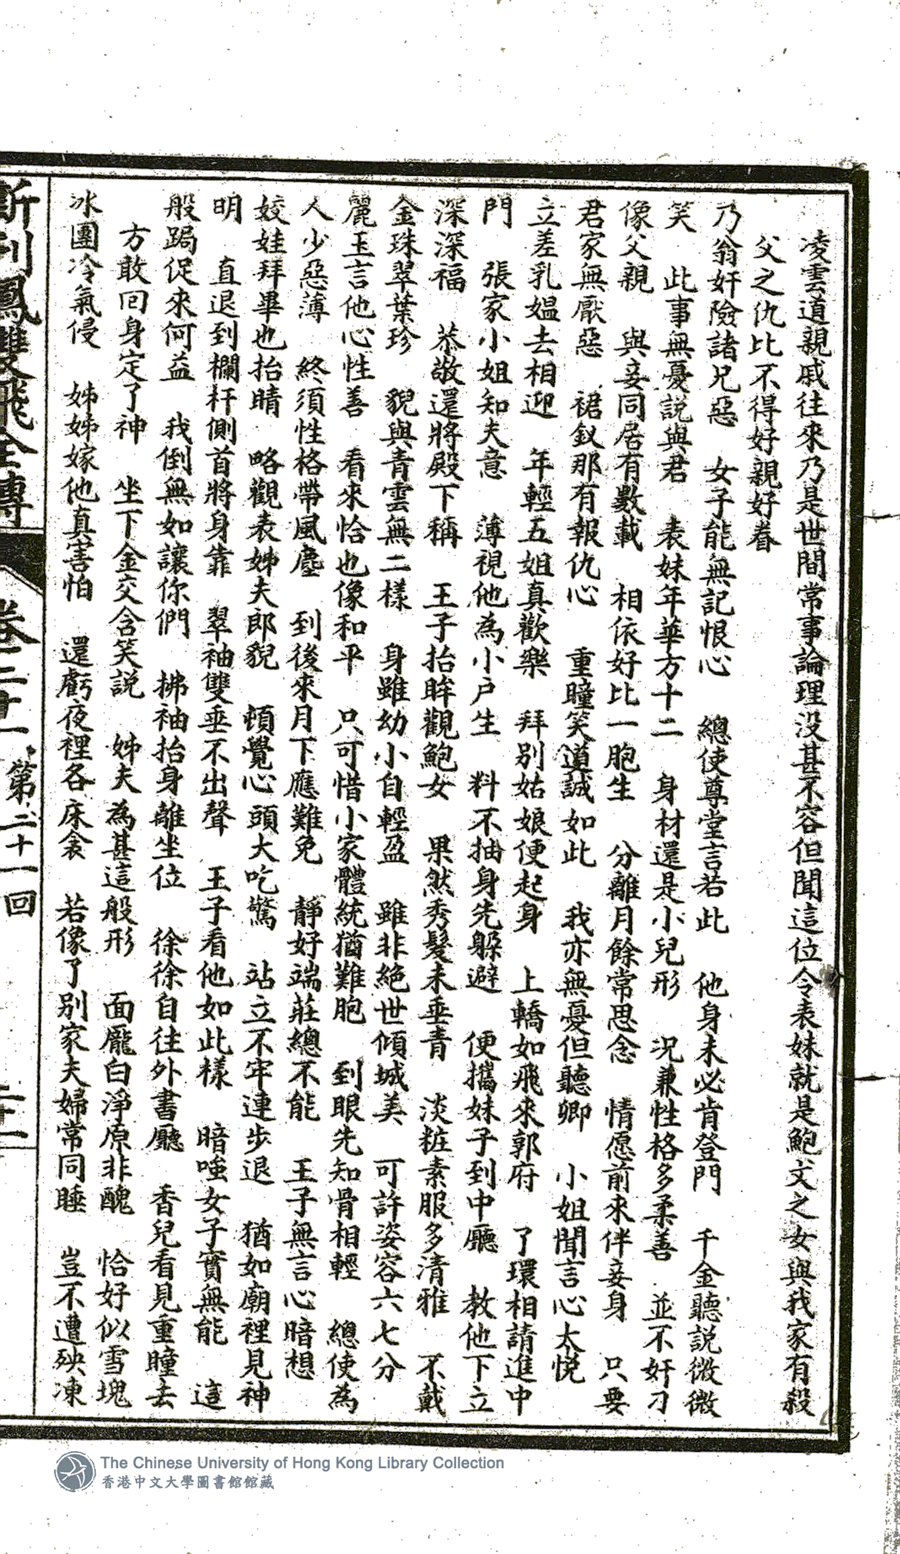 凌雲道親戚往來乃是世間常事論理没甚不容但聞這位令表妹就是鮑文之女與我家有殺
父之仇比不得好親好眷
乃翁奸險諸兄惡　女子能無記恨心　總使尊堂言若此　他身未必肯登門　千金聽説微微
笑　此事無憂説與君　表妹年華方十二　身材還是小兒形　况兼性格多柔善　並不奸刁
像父親　與妾同居有數載　相依好比一胞生　分離月餘常思念　情愿前來伴妾身　只要
君家無厭惡　裙釵那有報仇心　重瞳笑道誠如此　我亦無憂但聽卿　小姐聞言心太悦
立差乳媪去相迎　年輕五姐真歡樂　拜别姑娘便起身　上轎如飛來郭府　了環相請進中
門　張家小姐知夫意　薄視他為小户生　料不抽身先躲避　便攜妹子到中廳　教他下立
深深福　恭敬還將殿下稱　王子抬眸觀鮑女　果然秀髮未垂青　淡粧素服多清雅　不戴
金珠翠葉珍　貌與青雲無二樣　身雖幼小自輕盈　雖非絶世傾城美　可許姿容六七分
麗玉言他心性善　看來恰也像和平　只可惜小家體統猶難胞　到眼先知骨相輕　總使為
人少惡薄　終須性格帶風塵　到後來月下應難免　靜好端莊總不能　王子無言心暗想
姣娃拜畢也抬睛　略觀表姊夫郎貌　頓覺心頭大吃驚　站立不牢連步退　猶如廟裡見神
明　直退到欄杆側首將身靠　翠袖雙垂不出聲　王子看他如此樣　暗嗤女子實無能　這
般跼促來何益　我倒無如讓你們　拂袖抬身離坐位　徐徐自往外書廳　香兒看見重瞳去
方敢回身定了神　坐下金交含笑説　姊夫為甚這般形　面龐白淨原非醜　恰好似雪塊
冰團冷氣侵　姊姊嫁他真害怕　還虧夜裡各床衾　若像了别家夫婦常同睡　豈不遭殃凍
新刊鳳雙飛全傳　卷二十一　第二十一回　二十一
The Chinese University of Hong Kong Library Collection
香港中文大學圖書館館藏